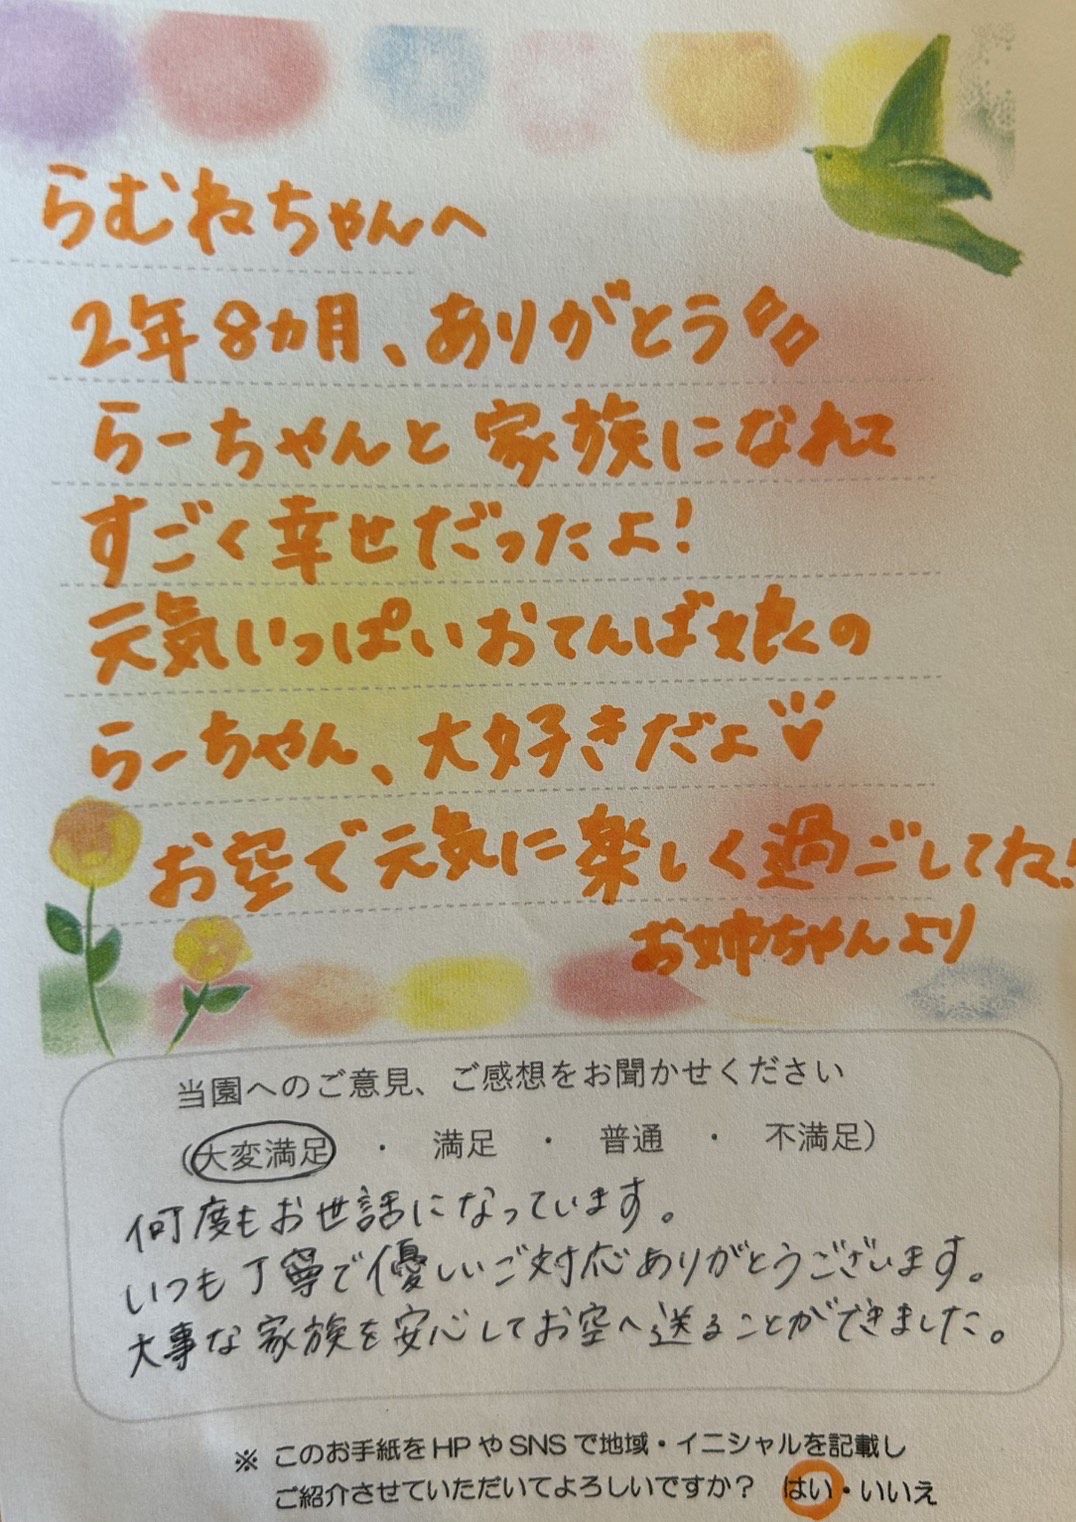 らむねちゃんへ
2年8カ月、ありがとう
らーちゃんと家族になれて
すごく幸せだったよ!
元気いっぱいおてんば娘の
らーちゃん、大好きだよ
お空で元気に楽しく過ごしてね!
お姉ちゃんより
当園へのご意見、ご感想をお聞かせください
(大変満足 ・ 満足 ・ 普通 ・ 不満足)
何度もお世話になっています。
いつも丁寧で優しいご対応ありがとうございます。
大事な家族を安心してお空へ送ることができました。
※ このお手紙をHPやSNSで地域・イニシャルを記載し
ご紹介させていただいてよろしいですか? はい・いいえ